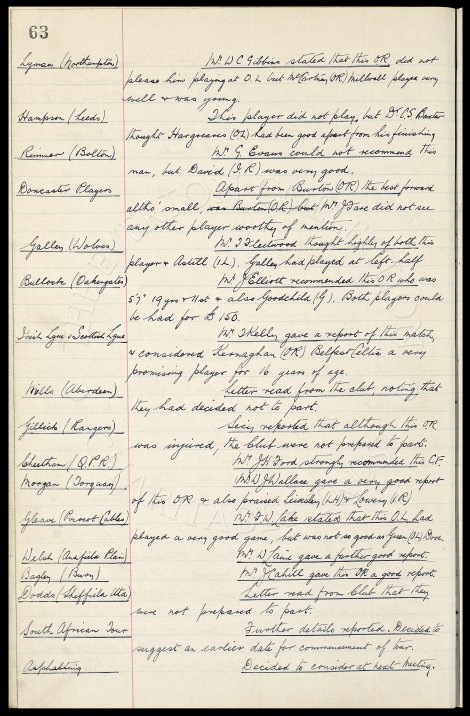 63
Lyman (Northampton) Mr W C Gibbins stated that this OR did not
please him playing at O.L. but McCartney (OR) Millwall played very
well & was young.
Hampson (Leeds) This player did not play, but Dr C.S. Baxter
thought Hargreaves (OL) had been good apart from his finishing
Rimmer (Bolton) Mr G. Evans could not recommend this
man, but David (I.R) was very good.
Doncaster Players Apart from Burton (OR) the best forward
altho' small, was Burton (O.R) but Mr J Fare did not see
any other player worthy of mention.
Galley (Wolves) Mr J Fleetwood thought highly of both this
player & Astill (I.L). Galley had played at left half
Bullock (Oakengates) Mr J Elliott recommended this OR who was
5'7" 19 yrs & 11st & also Goodchild (G). Both players could
be had for £150.
Irish Lgue v Scottish Lgue Mr J Kelly gave a report of this match,
& considered Kernaghan (OR) Belfast Celtic a very
promising player for 16 years of age.
Mills (Aberdeen) Letter read from the club, noting that
they had decided not to part.
Gillick (Rangers) Secy reported that although this OR
was injured, the Club were not prepared to part.
Cheetham (Q.P.R.) Mr J H Ford strongly recommended this C.F.
Morgan (Torquay) Mr W J Wallace gave a very good report
of this OR & also praised (LH) & Lowery (IR)
Gleave (Prescot Cables) Mr F W Lake stated that this O.L. had
played a very good game, but was not so good as Green (OL) Dove.
Welsh (Annfield Plain) Mr W Laine gave a further good report.
Bagley (Bury) Mr J Cahill gave this OR a good report.
Dodds (Sheffield Utd) Letter read from Club that they
were not prepared to part.
South African Tour Further details reported. Decided to
suggest an earlier date for commencement of tour.
Asphalting Decided to consider at next meeting.